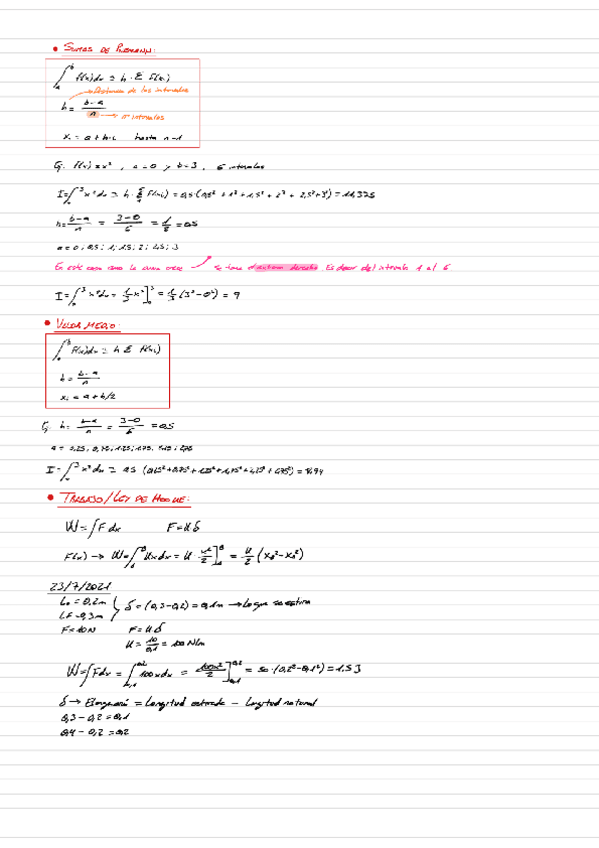 • SUMAS DE RIEMANN:
∫ₐᵇ f(x)dx ≃ h · Σ f(xᵢ)
→ Distancia de los intervalos
h = b-a/n → nº intervalos
xᵢ = a + h·i hasta n-1
Ej. f(x) = x², a = 0 y b = 3, 6 intervalos
I = ∫₀³ x² dx ≃ h · Σ f(xᵢ) = 0,5 · (0,5² + 1² + 1,5² + 2² + 2,5² + 3²) = 11,375
h = b-a/n = 3-0/6 = 1/2 = 0,5
a = 0; 0,5; 1; 1,5; 2; 2,5; 3
En este caso como la curva crece → se toma extremo derecho. Es decir del intervalo 1 al 6
I = ∫₀³ x² dx = 1/3 x³]₀³ = 1/3 (3³ - 0³) = 9
• VALOR MEDIO:
∫ₐᵇ f(x)dx ≃ h Σ f(xᵢ)
h = b-a/n
xᵢ = a + h/2
Ej. h = b-a/n = 3-0/6 = 0,5
a = 0,25; 0,75; 1,25; 1,75; 2,25; 2,75
I = ∫₀³ x² dx ≃ 0,5 (0,25² + 0,75² + 1,25² + 1,75² + 2,25² + 2,75²) = 8,94
• TRABAJO/LEY DE HOOKE:
W = ∫F dx F = K δ
F(x) → W = ∫ₐᵇ Kx dx = K · x²/2]ₐᵇ = K/2 (x_B² - x_A²)
23/7/2021
L₀ = 0,2m } δ = (0,3 - 0,2) = 0,1m → Lo que se estira
LF = 0,3m
F = 10N F = K δ
K = 10/0,1 = 100 N/m
W = ∫F dx = ∫₀,₁^0,2 100x dx = 100x²/2]₀,₁^0,2 = 50 · (0,2² - 0,1²) = 1,5 J
δ → Elongación = Longitud estirada - Longitud natural
0,3 - 0,2 = 0,1
0,4 - 0,2 = 0,2